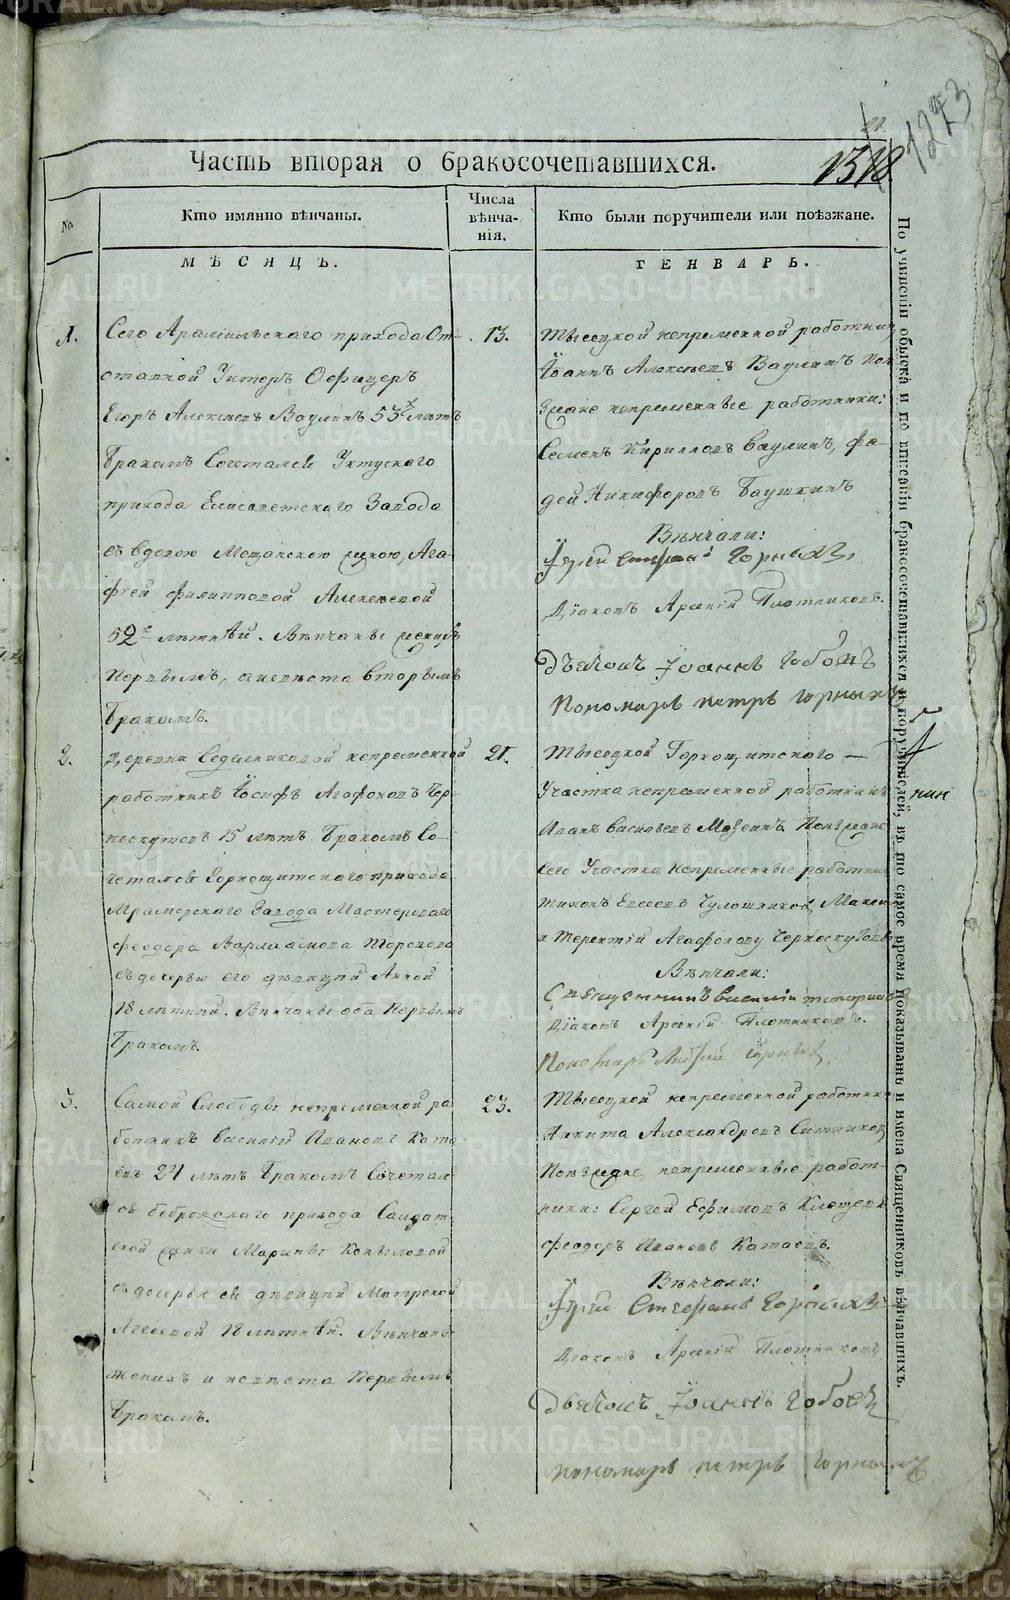 1273
1318.
Часть вторая о бракосочетавшихся.
№
Кто имянно вѣнчаны.
Числа вѣнча-нія.
Кто были поручители или поѣзжане.
МѢСЯЦЪ.
ГЕНВАРЬ.
1.
Сего Арамильскаго прихода От-
ставной Унтеръ Офицеръ
Егоръ Алексѣевъ Ваулинъ 53х лѣтъ
бракомъ Сочетался Уктускаго
прихода Елисаветскаго Завода
съ вдовою Мещанскою женою, Ага-
фьей Филипповой Алексѣевой
52х лѣтнѣй. Вѣнчаны женихъ
первымъ, а невѣста вторымъ
бракомъ.
13.
Тысецкой непременной работник
Іоаннъ Алексѣевъ Ваулинъ Поѣ
зжане непременные работники:
Семенъ Кирилловъ Ваулинъ, Фа-
дей Никифоровъ Баушкинъ
Вѣнчали:
Іерей Стефанъ Горныхъ,
Діаконъ Арсеній Плотниковъ.
Дьячокъ Іоаннъ
Пономарь Петръ Горныхъ
2.
Деревни Седельниковой непременной
работникъ Іосифъ Агафоновъ Чер-
носкутовъ лѣтъ бракомъ Со-
четался Горнощитского прихода
Мраморского Завода Мастероваго
Феодора Варлаамова
съ дочерью его дѣвицей Анной
18 лѣтней. Вѣнчаны оба первымъ
бракомъ.
21.
Тысецкой Горнощитского —
Участка непременной работникъ
Иванъ Васильевъ Поѣзжане
Сего Участка непременные работни
Тихонъ Евсеевъ Максим
и Терентій Агафоновы Черноскутовы
Вѣнчали:
Священникъ Василій
Діаконъ Арсеній Плотниковъ.
Пономарь Андрей Горныхъ.
3.
Самой Слободы непременной ра
ботникъ Василій Ивановъ Ката-
евъ лѣтъ бракомъ Сочетал
ся Бобровскаго прихода Салдат-
ской женки Марины Копыловой
съ дочерью ея дѣвицей Матреной
18 лѣтнѣй. Вѣнчаны
женихъ и невѣста первымъ
бракомъ.
23.
Тысецкой непременной работник
Никита Александровъ Ситников
Поѣзжане, непременные работ-
ники: Сергей Ефимовъ
Феодоръ Ивановъ Катаевъ.
Вѣнчали:
Іерей Стефанъ Горныхъ
Діаконъ Арсеній Плотниковъ
Дьячокъ Іоаннъ
Пономарь Петръ Горныхъ
По учиненіи обыска и по вписаніи бракосочетавшихся и поручителей, въ то самое время показывать и имена Священниковъ вѣнчавшихъ.
METRIKI.GASO-URAL.RU